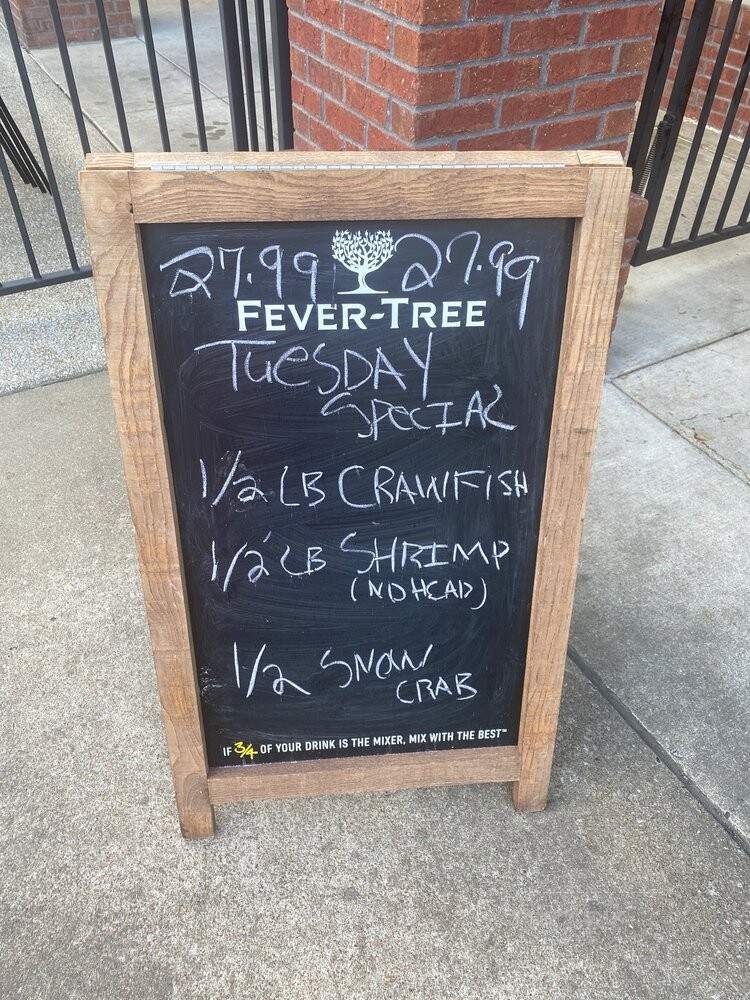 27.99 27.99
FEVER-TREE
TUESDAY
SPECIAL
1/2 LB CRAWFISH
1/2 LB SHRIMP
(NO HEAD)
1/2 SNOW
CRAB
IF 3/4 OF YOUR DRINK IS THE MIXER, MIX WITH THE BEST™